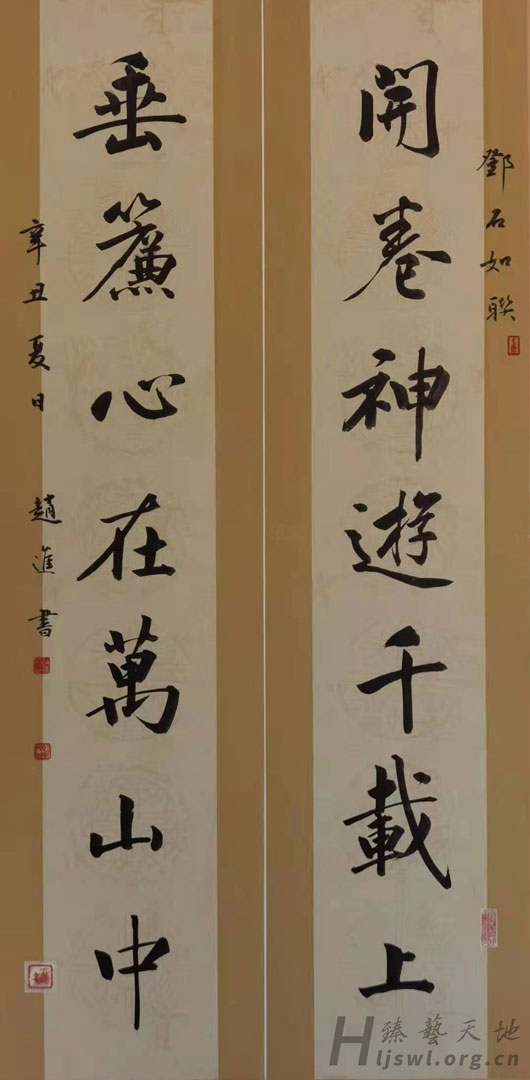 鄧石如聯
開卷神遊千載上
垂簾心在萬山中
辛丑夏日 趙進書
臻藝天地
Hljswl.org.cn